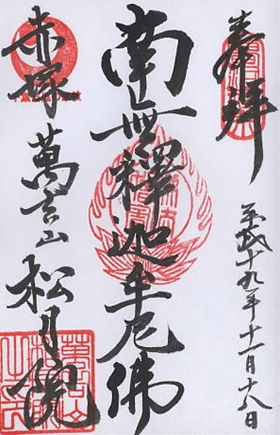 奉拝
平成十九年十一月十八日
南無釋迦牟尼佛
赤塚 萬吉山 松月院